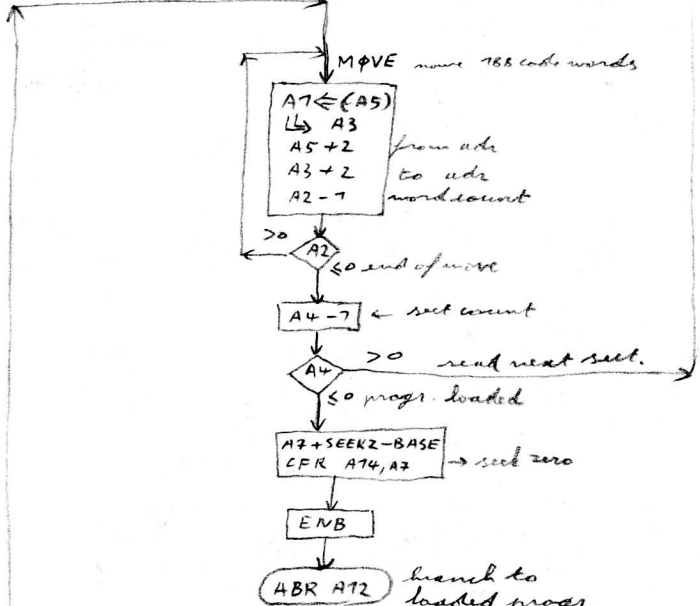 MØVE move 188 code words
A1 ⇐ (A5)
↳ A3
A5 + 2 from adr
A3 + 2 to adr
A2 - 1 word count
>0
A2
≤0 end of move
A4 - 1 ← sect count
>0 read next sect.
A4
≤0 progr. loaded
A7+SEEKZ-BASE
CFR A14,A7 → seek zero
ENB
ABR A12 branch to
loaded progr